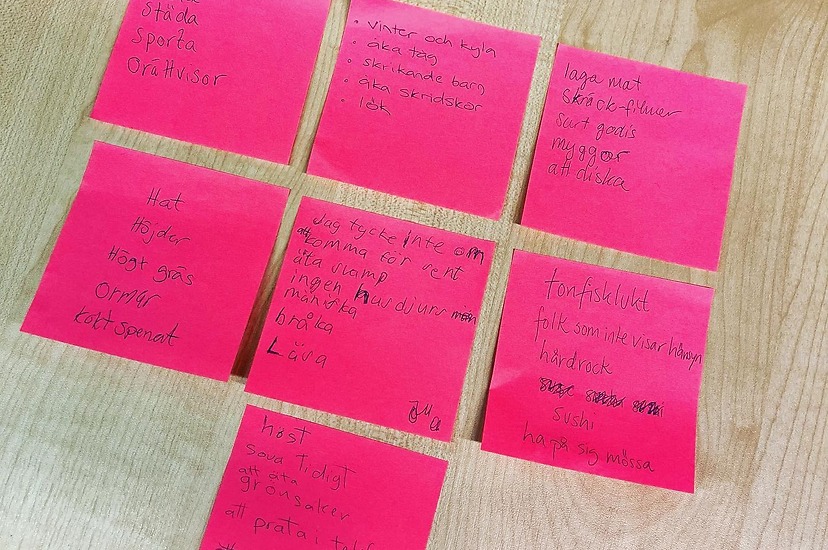 städa
Sporta
Orättvisor
• vinter och kyla
• åka tåg
• skrikande barn
• åka skridskor
• lök
laga mat
Skräck-filmer
surt godis
myggor
att diska
Hat
Höjder
Högt gräs
Ormar
kokt spenat
Jag tycke inte om
att komma för sent
äta svamp
ingen husdjurs
människa
bråka
Läsa
tonfisklukt
folk som inte visar hänsyn
hårdrock
sushi
ha på sig mössa
höst
sova tidigt
att äta
grönsaker
att prata i